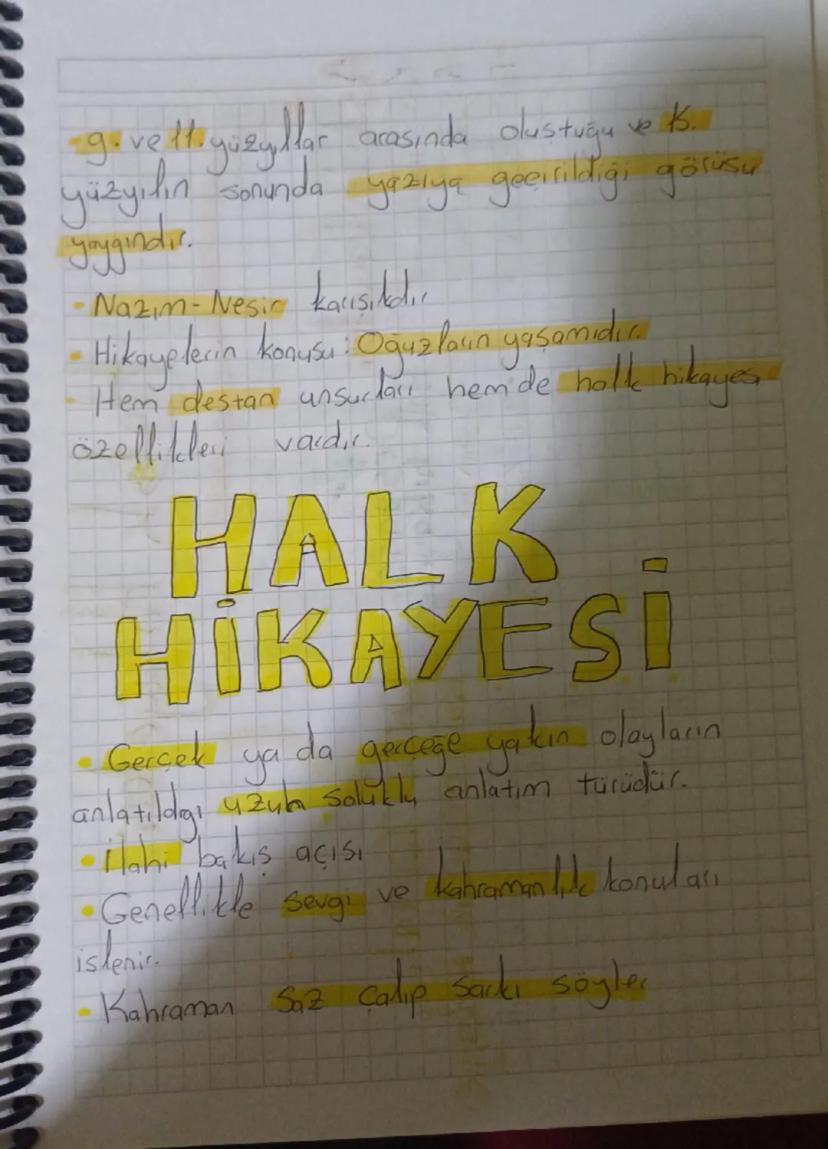 - 9. ve 11. yüzyıllar arasında oluştuğu ve 15.
yüzyılın sonunda yazıya geçirildiği görüşü
yaygındır.
- Nazım-Nesir karışıkdır
- Hikayelerin konusu: Oğuzların yaşamıdır.
- Hem destan unsurları hem de halk hikayesi
özellikleri vardır.
HALK
HİKAYESİ
• Gerçek ya da gerçeğe yakın olayların
anlatıldığı uzun soluklu anlatım türüdür.
• İlahi bakış açısı
• Genellikle sevgi ve kahramanlık konuları
işlenir.
• Kahraman saz çalıp şarkı söyler